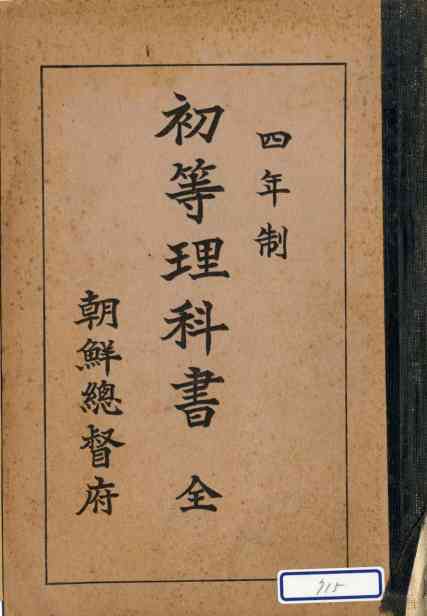 四年制
初等理科書 全
朝鮮總督府
715